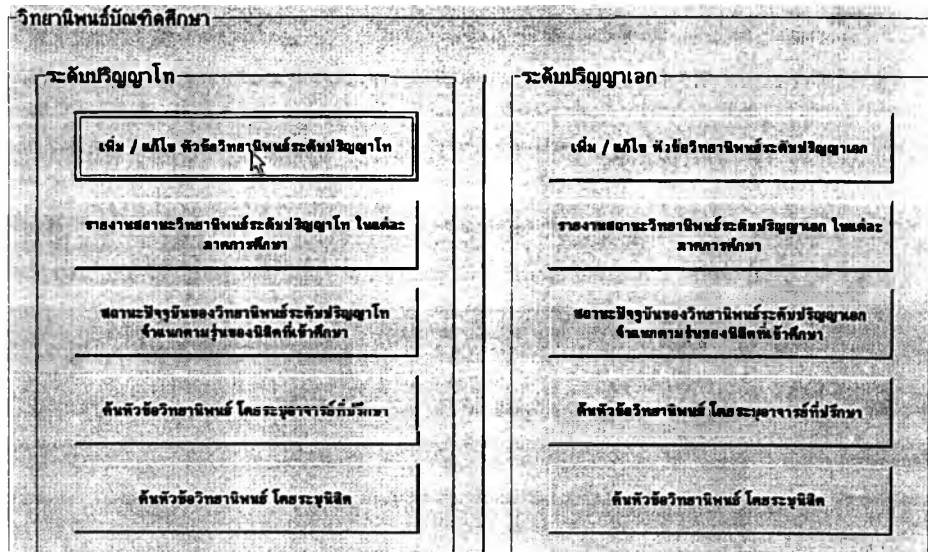 วิทยานิพนธ์บัณฑิตศึกษา
ระดับปริญญาโท
เพิ่ม / แก้ไข หัวข้อวิทยานิพนธ์ระดับปริญญาโท
รายงานสถานะวิทยานิพนธ์ระดับปริญญาโท ในแต่ละ
ภาคการศึกษา
สถานะปัจจุบันของวิทยานิพนธ์ระดับปริญญาโท
จำแนกตามรุ่นของนิสิตที่เข้าศึกษา
ค้นหัวข้อวิทยานิพนธ์ โดยระบุอาจารย์ที่ปรึกษา
ค้นหัวข้อวิทยานิพนธ์ โดยระบุนิสิต
ระดับปริญญาเอก
เพิ่ม / แก้ไข หัวข้อวิทยานิพนธ์ระดับปริญญาเอก
รายงานสถานะวิทยานิพนธ์ระดับปริญญาเอก ในแต่ละ
ภาคการศึกษา
สถานะปัจจุบันของวิทยานิพนธ์ระดับปริญญาเอก
จำแนกตามรุ่นของนิสิตที่เข้าศึกษา
ค้นหัวข้อวิทยานิพนธ์ โดยระบุอาจารย์ที่ปรึกษา
ค้นหัวข้อวิทยานิพนธ์ โดยระบุนิสิต